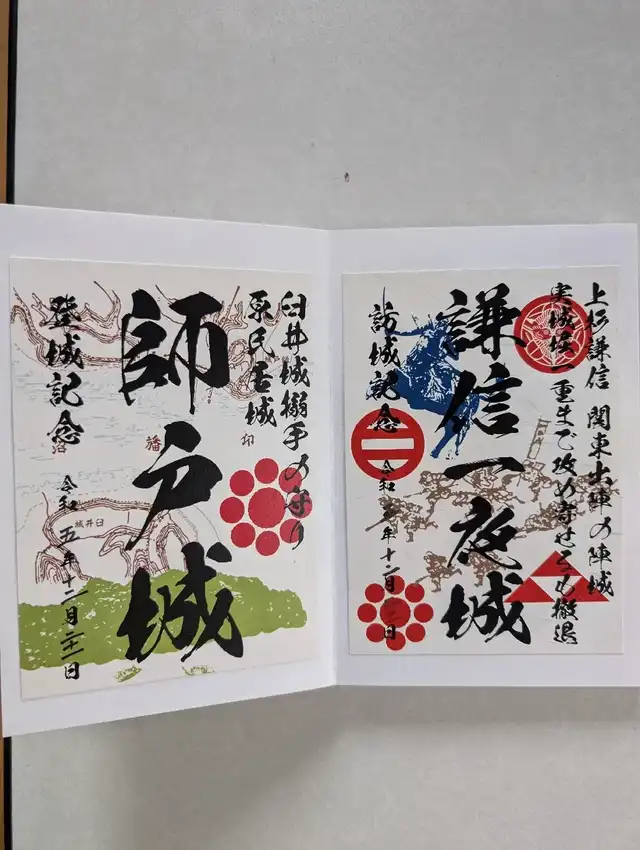 上杉謙信 関東出陣の陣城
実城堀一重まで攻め寄せるも撤退
謙信一夜城
訪城記念
令和 年十二月 日
臼井城搦手の守り
原氏
師戸城
登城記念
令和五年十二月
印旛沼
臼井城